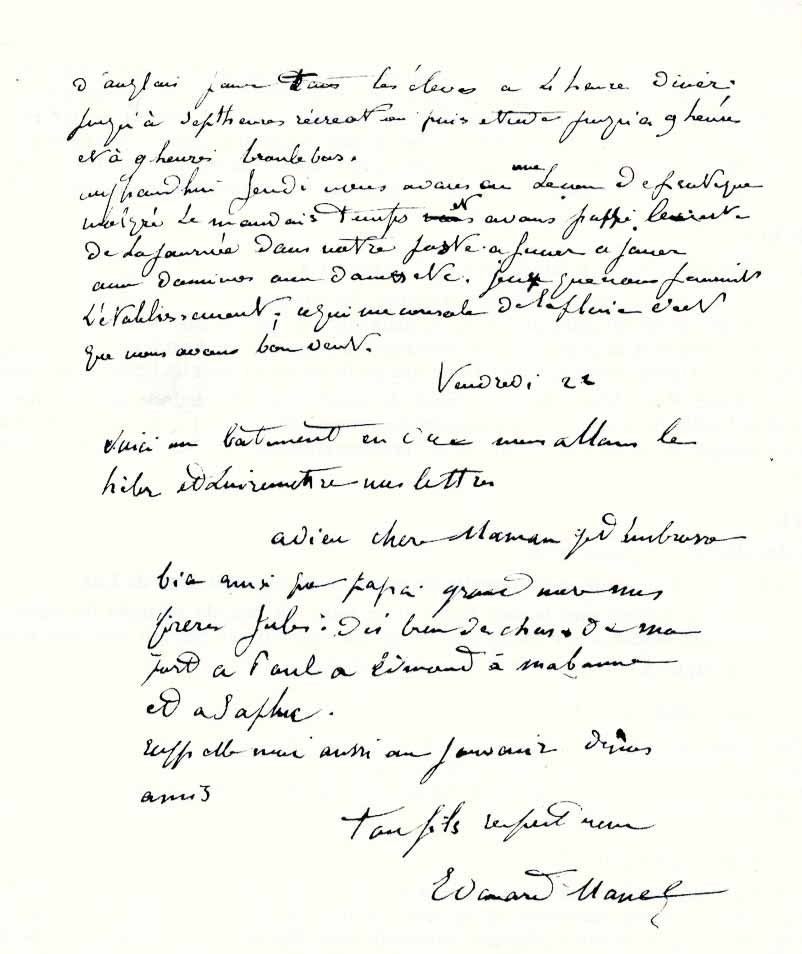 d'anglais pour tous les élèves a 4 heure diner.
jusqu'à sept heures récreation puis etude jusqu'a 9 heures
et à 9 heures branle bas.
aujourdhui Jeudi nous avons eu une Leçon de pratique
malgré Le mauvais temps et avons passé le reste
de La journée dans notre poste a fumer a jouer
aux dominos aux dames etc. jeux que nous fournit
L'établissement; ce qui me console de la pluie c'est
que nous avons bon vent.
Vendredi 22
Voici un bâtiment en vue nous allons le
héler et Lui remettre nos lettres
adieu chere Maman je t'embrasse
bien ainsi que papa grand mere mes
freres Jules. dis bien des choses de ma
part a Paul a Edmond à ma bonne
et a Sophie.
rappelle moi aussi au souvenir de nos
amis
Ton fils respectueux
Edouard Manet